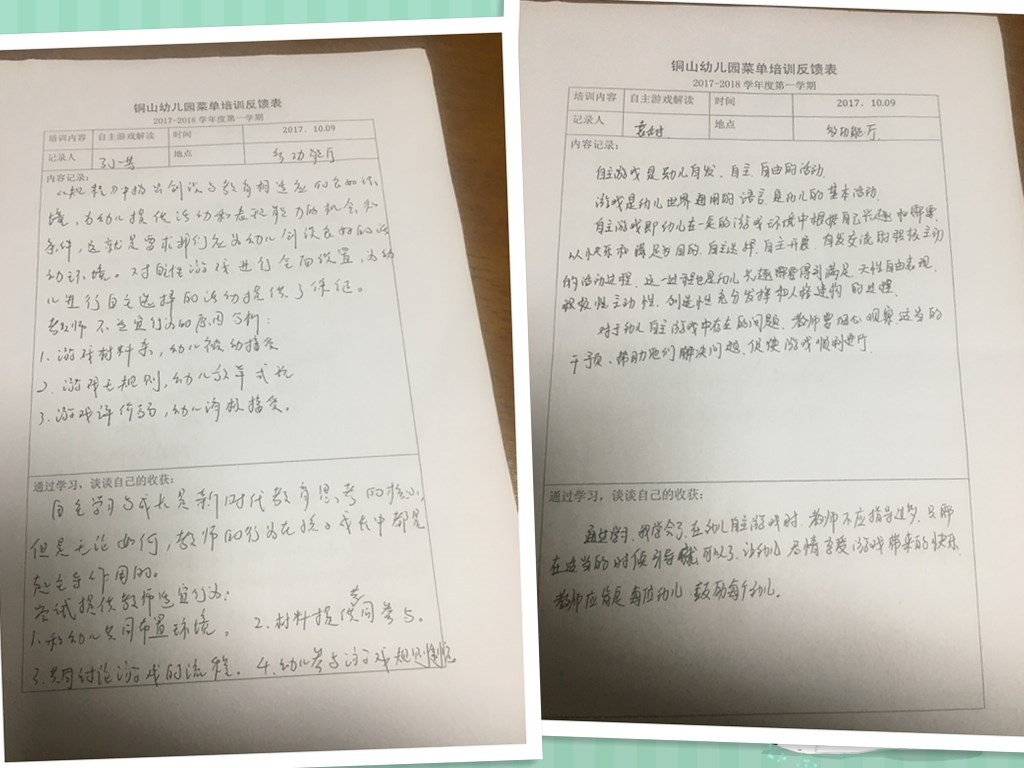 铜山幼儿园菜单培训反馈表
2017-2018 学年度第一学期
培训内容 自主游戏解读 时间 2017.10.09
记录人 地点 多功能厅
内容记录:
《规程》中指出创设与教育相适应的良好环
境，为幼儿提供活动和表现能力的机会和
条件，这就是要求我们应为幼儿创设良好的活
动环境。对自主性游戏进行全面设置，为幼
儿进行自主选择的活动提供了保证。
教师不适宜行为的原因分析:
1. 游戏材料杂，幼儿被动接受
2. 游戏无规则，幼儿放羊式玩
3. 游戏评价弱，幼儿消极接受。
通过学习，谈谈自己的收获:
自主学习与成长是新时代教育思考的核心，
但是无论如何，教师的行为在孩子成长中都是
起主导作用的。
尝试提供教师适宜行为:
1. 和幼儿共同布置环境。 2. 材料提供共同参与。
3. 共同讨论游戏的流程。 4. 幼儿参与游戏规则制定
铜山幼儿园菜单培训反馈表
2017-2018 学年度第一学期
培训内容 自主游戏解读 时间 2017.10.09
记录人 地点 多功能厅
内容记录:
自主游戏是幼儿自发、自主、自由的活动。
游戏是幼儿世界通用的语言，是幼儿的基本活动。
自主游戏即幼儿在一定的游戏环境中根据自己兴趣和需要，
以快乐和满足为目的，自主选择、自主开展、自发交流的积极主动
的活动过程，这一过程也是幼儿兴趣需要得到满足，天性自由表现，
积极性主动性、创造性充分发挥和人格建构的过程。
对于幼儿自主游戏中存在的问题，教师要细心观察，适当的
干预、帮助他们解决问题，促使游戏顺利进行。
通过学习，谈谈自己的收获:
通过学习，我学会了在幼儿自主游戏时，教师不应指导过多，只那
在适当的时候引导就可以了，让幼儿尽情享受游戏带来的快乐，
教师应肯定每位幼儿，鼓励每个幼儿。